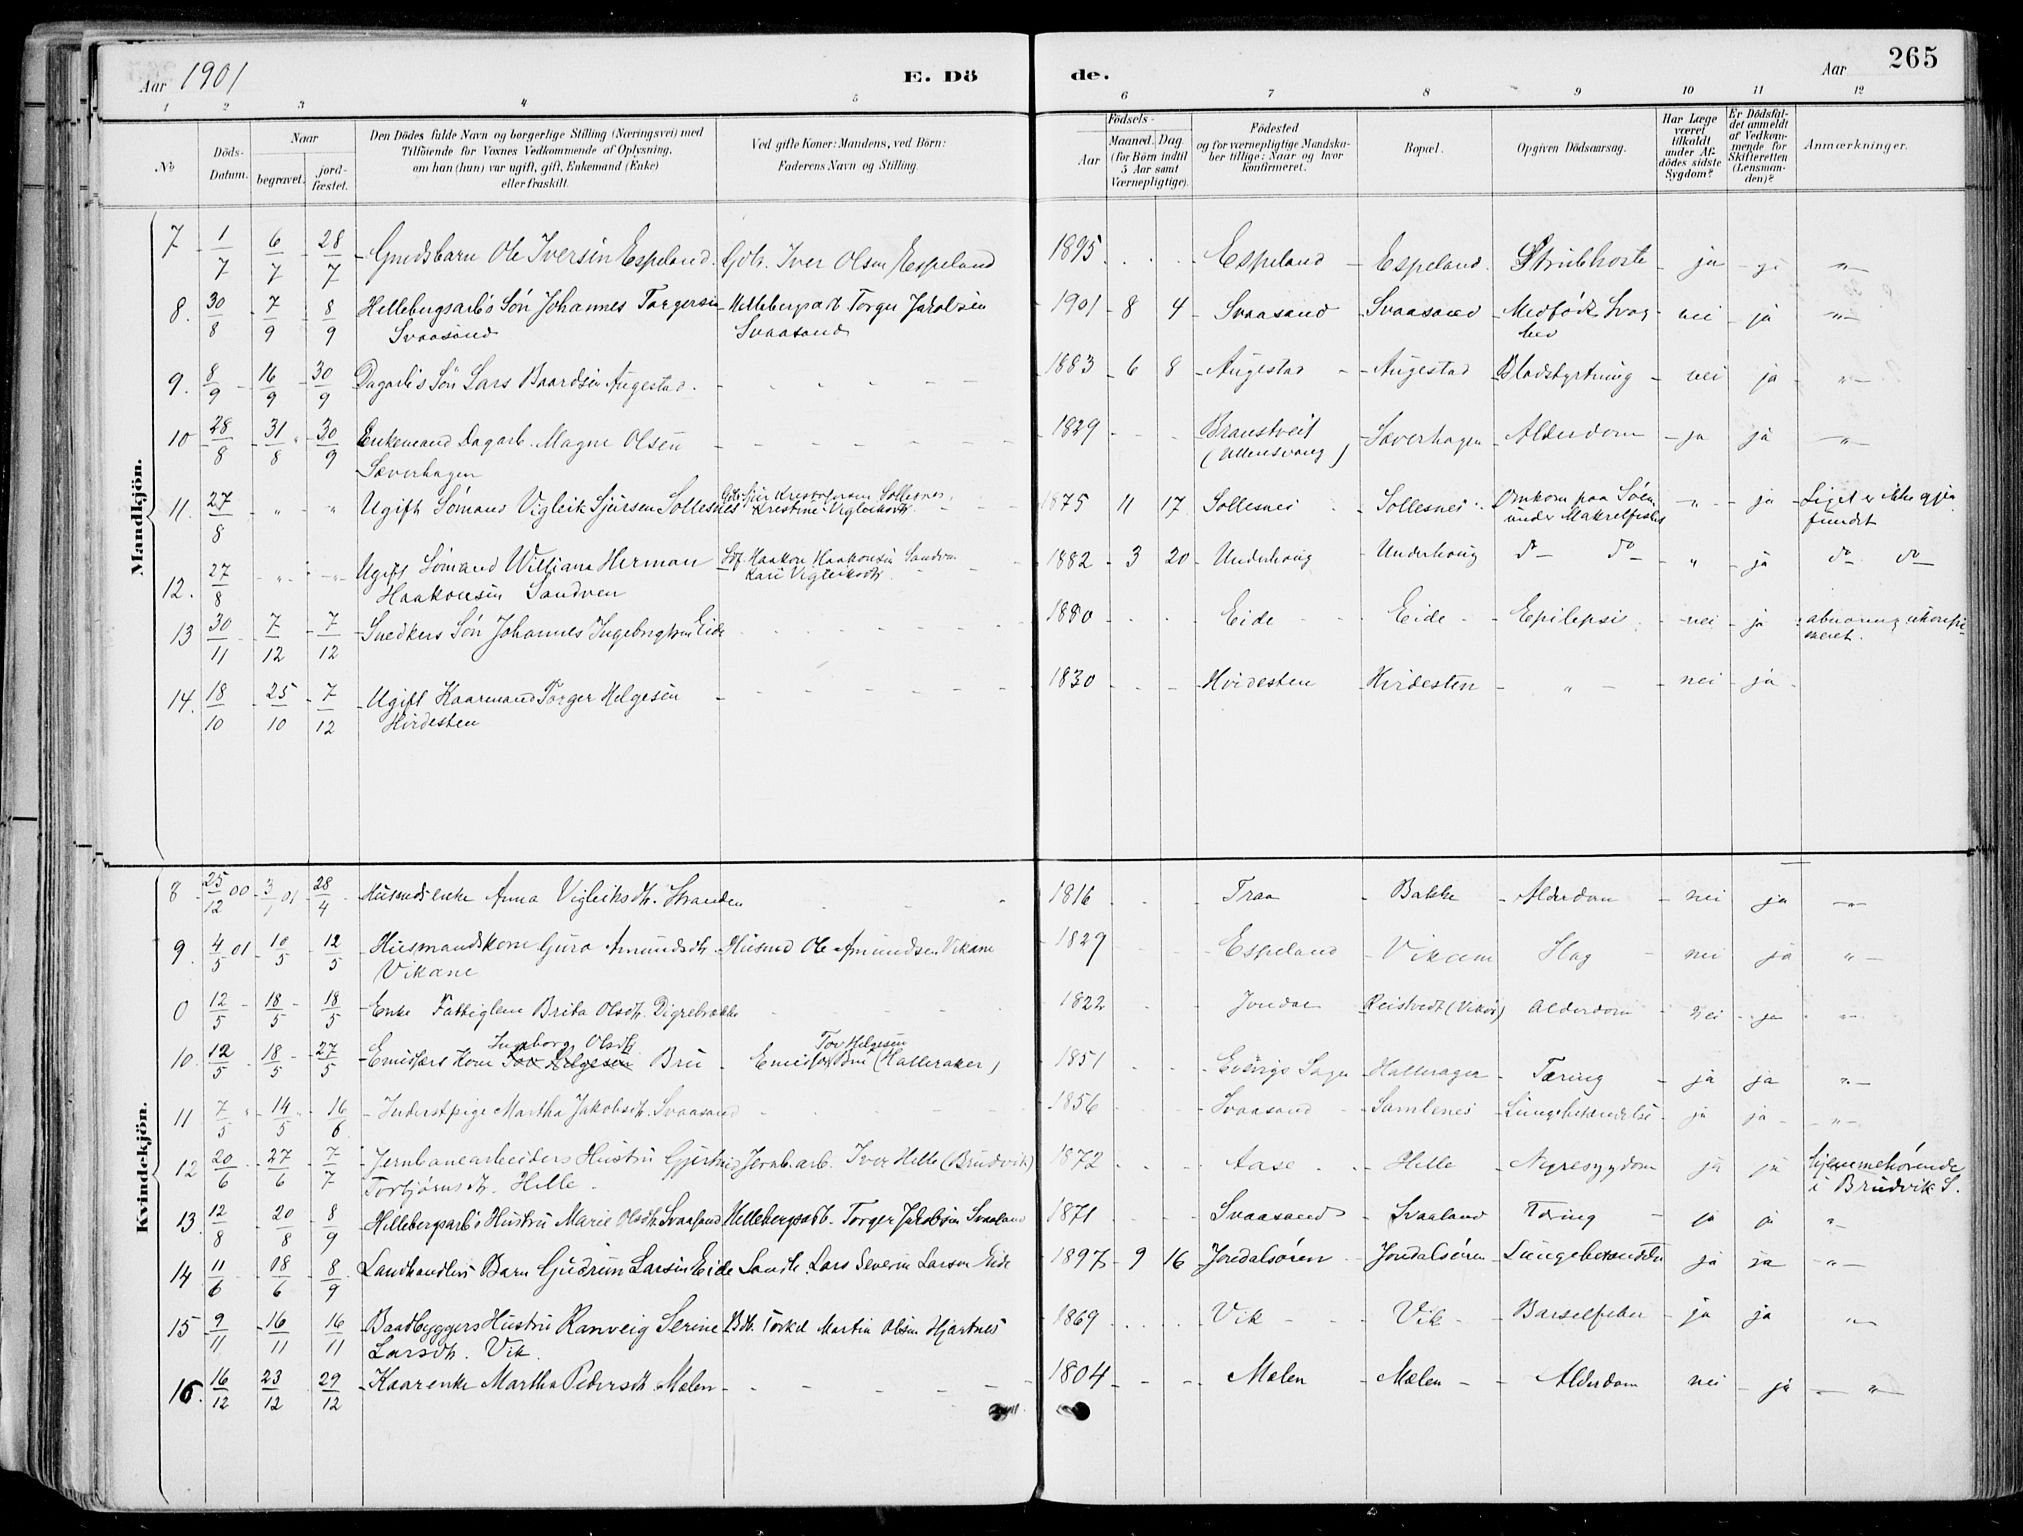 Aar 1901 E. Dö de. Aar 265
1 2 3 4 5 6 7 8 9 10 11 12
No Döds-Datum. Naar begravet. jord-fæstet. Den Dödes fulde Navn og borgerlige Stilling (Næringsvei) med Tilföiende for Voxnes Vedkommende af Oplysning, om han (hun) var ugift, gift, Enkemand (Enke) eller fraskilt. Ved gifte Koner: Mandens, ved Börn: Faderens Navn og Stilling. Födsels- Aar Maaned. Dag. (for Börn indtil 5 Aar samt Værnepligtige). Födested og for værnepligtige Mandskaber tillige: Naar og hvor Konfirmeret. Bopæl. Opgiven Dödsaarsag. Har Læge været tilkaldt under Afdödes sidste Sygdom? Er Dödsfaldet anmeldt af Vedkommende for Skifteretten (Lensmanden)? Anmærkninger.
Mandkjön.
7 1/7 6/7 28/7 Gmdsbarn Ole Iversen Espeland. Gdb. Iver Olsen Espeland 1895 Espeland Espeland Strubhoste ja ja "
8. 30/8 7/9 8/9 Hellebergsarb's Sön Johannes Torgersen Hellebergsarb Torger Jakobsen 1901 8 4 Svaasand Svaasand Medfödt Svag nei ja "
Svaasand Svaasand hed
9. 8/9 16/9 30/9 Dagarb's Sön Lars Baardsen Augestad. 1883 6 8 Augestad Augestad Blodstyrtning nei ja "
10 28/8 31/8 30/9 Enkemand Dagarb. Magne Olsen 1829 Braustveit Sæverhagen Alderdom ja ja "
Sæverhagen (Ullensvang)
11. 27/8 " " Ugift Sömand Vigleik Sjursen Sollesnes Gdb Sjur Kristofersen Sollesnes, 1875 11 17 Sollesnes Sollesnes Omkom paa Söen " ja Liget er ikke gjen
Kristine Vigleiksdtr under Makrelfiske fundet
12. 27/8 " " Ugift Sömand William Herman Haakon Haakonsen Sandven 1882 3 20 Underhaug Underhaug do do " ja do do
Haakonsen Sandven Kari Vigleiksdtr.
13 30/11 7/12 7/12 Snedkers Sön Johannes Ingebrigtsen Eide 1880 Eide Eide Epilepsi nei ja abnorm, ukonfir-
meret.
14. 18/10 25/10 7/12 Ugift Kaarmand Torger Helgesen 1830 Hvidesten Hvidesten " nei ja
Hvidesten
Kvindekjön.
8 25/12 00 3/1 01 28/4 Husmdsenke Anna Vigleiksdtr. Stranden 1816 Traa Bakke Alderdom nei ja "
9. 4/5 01 10/5 12/5 Husmandskone Guro Amundsdtr. Husmd Ole Amundsen Vikane 1829 Espeland Vikane nei ja "
Vikane
0 12/5 18/5 18/5 Enke Fattiglem Brita Olsdtr. Digrebrække 1822 Jondal Reistvedt (Vikör) Alderdom nei ja "
Ingeborg Olsdtr Tov Helgesen
10. 12/5 18/5 27/5 Emissærs Kone Tov Helgesen Bru Emissær Bru (Halleraker) 1851 Hallerager Tæring ja ja "
11 7/5 14/5 16/6 Inderstpige Martha Jakobsdtr. Svaasand 1856 Svaasand Samlenes Lungebetændelse ja ja "
12 20/6 27/6 7/7 Jernbanearbeiders Hustru Gjertrud Jernb.arb. Iver Helle (Brudvik) 1872 Aase Helle Nyresygdom ja ja hjemmehörende
Torbjörnsdtr. Helle i Brudvik S.
13. 12/8 20/8 8/9 Hellebergsarb's Hustru Marie Olsdtr. Svaasand Hellebergsarb. Torger Jakobsen Svaasand 1871 Svaasand Svaasand Tæring ja ja "
14 11/6 18/6 8/9 Landhandlers Barn Gudrun Larsen Eide Landh. Lars Severin Larsen Eide 1897 9 16 Jondalsören Jondalsören Lungebetændelse ja ja "
15 9/11 16/11 16/11 Baadbyggers Hustru Ranveig Serine Bdb. Torkel Martin Olsen Hjartnes 1869 Vik Vik Barselfeber ja ja "
Larsdtr. Vik.
16. 16/12 23/12 29/12 Kaarenke Martha Pedersdtr. Mælen 1804 Mælen Mælen Alderdom nei ja "